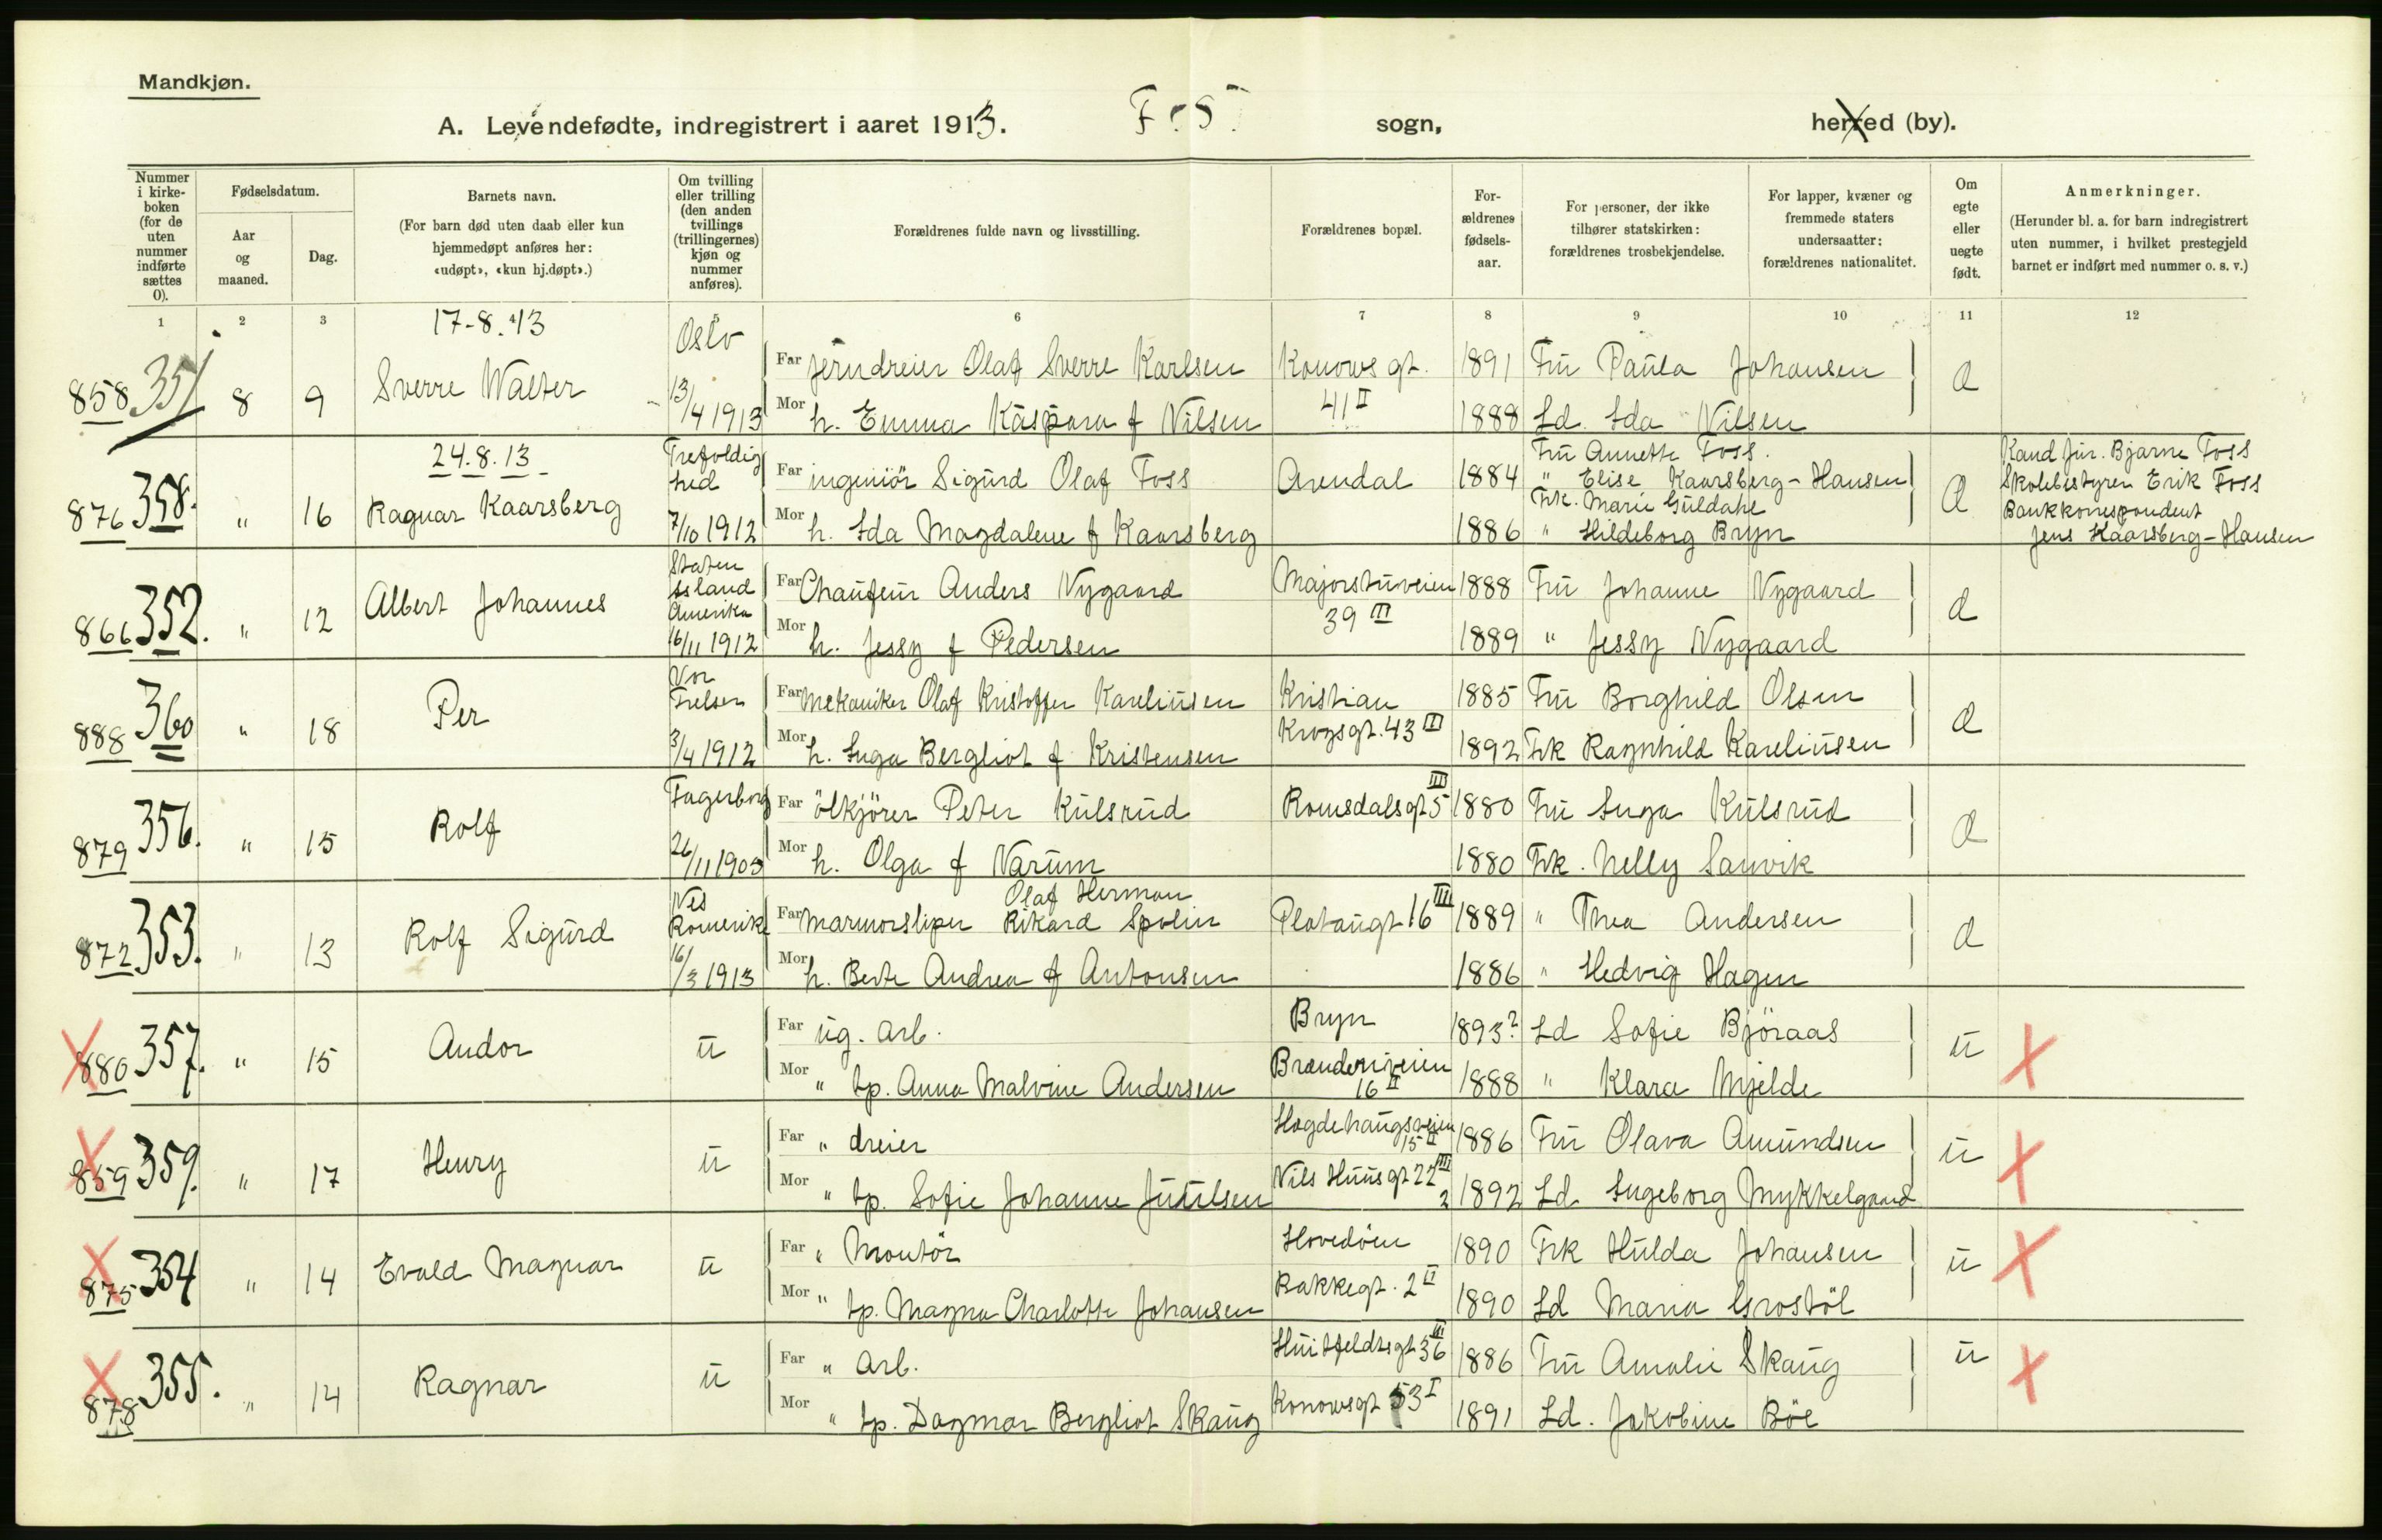 Mandkjøn.
A. Levendefødte, indregistrert i aaret 1913. F.S. sogn, herred (by).
Nummer i kirkeboken (for de uten nummer indførte sættes 0).
Fødselsdatum.
Aar og maaned.
Dag.
Barnets navn.
(For barn død uten daab eller kun hjemmedøpt anføres her: «udøpt», «kun hj.døpt».)
Om tvilling eller trilling (den anden tvillings (trillingernes) kjøn og nummer anføres).
Forældrenes fulde navn og livsstilling.
Forældrenes bopæl.
Forældrenes fødselsaar.
For personer, der ikke tilhører statskirken: forældrenes trosbekjendelse.
For lapper, kvæner og fremmede staters undersaatter: forældrenes nationalitet.
Om egte eller uegte født.
Anmerkninger.
(Herunder bl. a. for barn indregistrert uten nummer, i hvilket prestegjeld barnet er indført med nummer o. s. v.)
1 2 3 4 5 6 7 8 9 10 11 12
17-8.13 Oslo
858 351 8 9 Sverre Walter 13/4 1913
Far Jerndreier Olaf Sverre Karlsen Konows gt. 1891 Fru Paula Johansen
Mor h. Emma Kaspara f Nilsen 41 II 1888 Ld. Ida Nilsen
Æ
24.8.13 Trefoldighed
876 358. " 16 Ragnar Kaarsberg 7/10 1912
Far ingeniör Sigurd Olaf Foss Arendal 1884 Fru Annette Foss.
" Elise Kaarsberg-Hansen
Frk. Marie Guldahl
Mor h. Ida Magdalene f Kaarsberg 1886 " Hildeborg Bryn
Æ
Kand jur. Bjarne Foss
Skolebestyrer Erik Foss
Bankkorrespondent
Jens Kaarsberg-Hansen
Staten Island Amerika
866 352. " 12 Albert Johannes 16/11 1912
Far Chaufeur Anders Nygaard Majorstuveien 1888 Fru Johanne Nygaard
Mor h. Jessy f Pedersen 39 III 1889 " Jessy Nygaard
Æ
Vor Frelser
888 360 " 18 Per 3/4 1912
Far Mekaniker Olaf Kristoffer Kareliusen Kristian 1885 Fru Borghild Olsen
Mor h. Inga Bergliot f. Kristensen Krogsgt. 43 II 1892 Frk Ragnhild Kareliusen
Æ
Fagerborg
879 356. " 15 Rolf 26/11 1905
Far ölkjörer Peter Kulsrud Romsdalsgt 5 III 1880 Fru Inga Kulsrud
Mor h. Olga f Narum 1880 Frk. Nelly Sanvik
Æ
Nes Romerike
872 353. " 13 Rolf Sigurd 16/3 1913
Olaf Herman
Far Marmorsliper Rikard Spolin Platougt 16 III 1889 " Thea Andersen
Mor h. Berte Andrea f Antonsen 1886 " Hedvig Hagen
Æ
880 357. " 15 Andor u
Far ug. arb. Bryn 1893? Ld Sofie Björaas
Mor " tp. Anna Malvine Andersen Brænderiveien 16 II 1888 " Klara Mjelde
u X
859 359. " 17 Henry u
Far " dreier Hegdehaugsveien 15 II 1886 Fru Olava Amundsen
Mor " tp. Sofie Johanne Juulsen Nils Huusgt 22 III 2 1892 Ld. Ingeborg Mykkelgaard
u X
875 354 " 14 Evald Magnar u
Far " Montör Hovedöen 1890 Frk Hulda Johansen
Mor " tp. Magna Charlotte Johansen Bakkegt. 2 II 1890 Ld Maria Grostöl
u X
878 355. " 14 Ragnar u
Far " Arb. Huitfeldtsgt 36 III 1886 Fru Amalie Skaug
Mor " tp. Dagmar Bergliot Skaug Konowsgt 53 I 1891 Ld. Jakobine Böe
u X